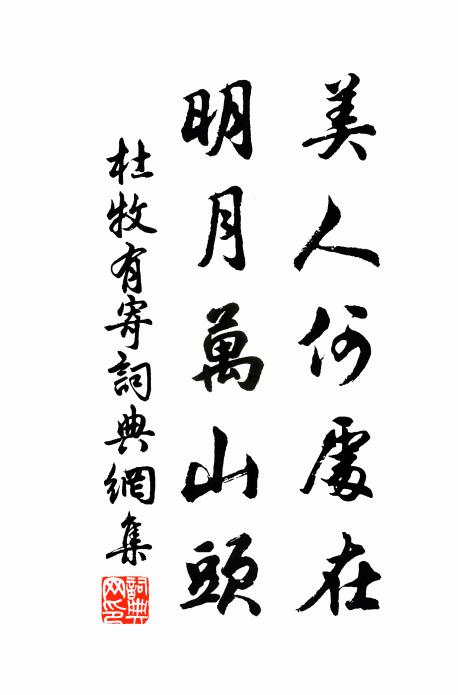 美人何處在
明月萬山頭
杜牧有寄詞典網集
詞典網印